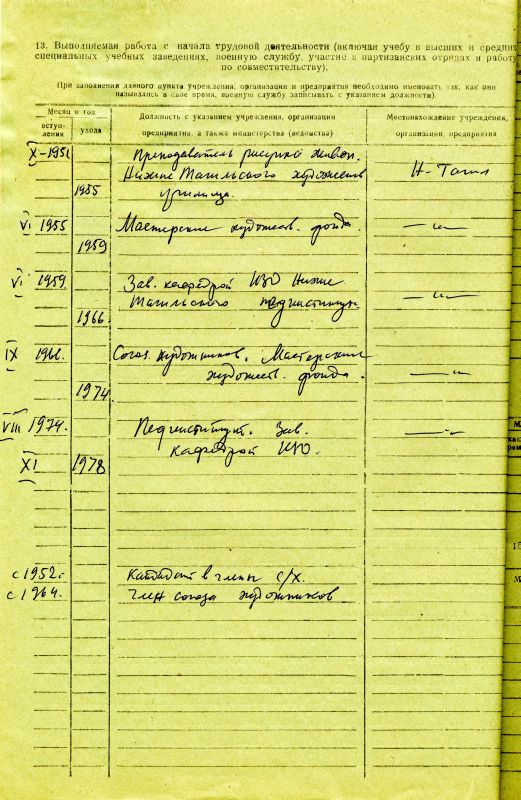 13. Выполняемая работа с начала трудовой деятельности (включая учебу в высших и средних
специальных учебных заведениях, военную службу, участие в партизанских отрядах и работу
по совместительству).
При заполнении данного пункта учреждения, организации и предприятия необходимо именовать так, как они
назывались в свое время, военную службу записывать с указанием должности).
Месяц и год
вступ-
ления
ухода
Должность с указанием учреждения, организации
предприятия, а также министерства (ведомства)
Местонахождение учреждения,
организации, предприятия
X-1951 Преподаватель рисунка живоп.
Нижне Тагильского художеств Н-Тагил
1955 училища.
VI 1955 Мастерские художеств. фонда. —"—
1959
VI 1959 Зав. кафедрой ИЗО Нижне
Тагильского пединститута. —"—
1966
IX 1966. Союз художников. Мастерские
художеств. фонда. —"—
1974
VIII 1974. Пединститут. Зав. —"—
кафедрой ИЗО.
XI 1978
с 1952г. Кандидат в члены С/Х.
с 1964. Член союза художников
15
М